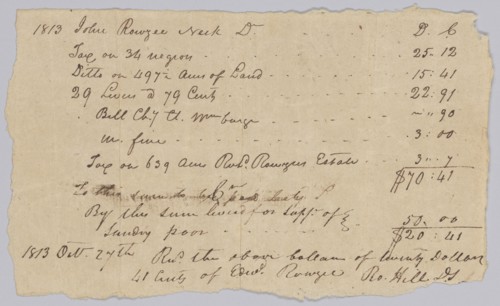 1813 John Rowzee Neck Dr D. C
Tax on 34 negros 25. 12
Ditto on 497 Acres of Land 15: 41
29 Levies @ 79 Cents 22: 91
Bell Chy Ct. Wmburge 90
m. fine 3: 00
Tax on 639 Acres Robt. Rowzees Estate 3. 7
$70: 41
To this sum to
By this sum levied for Suppt. of
Sundry poor 50. 00
$20: 41
1813 Octr. 27th Recd. the above ballance of twenty Dollars
41 Cents of Edwd. Rowzee Ro. Hill DS